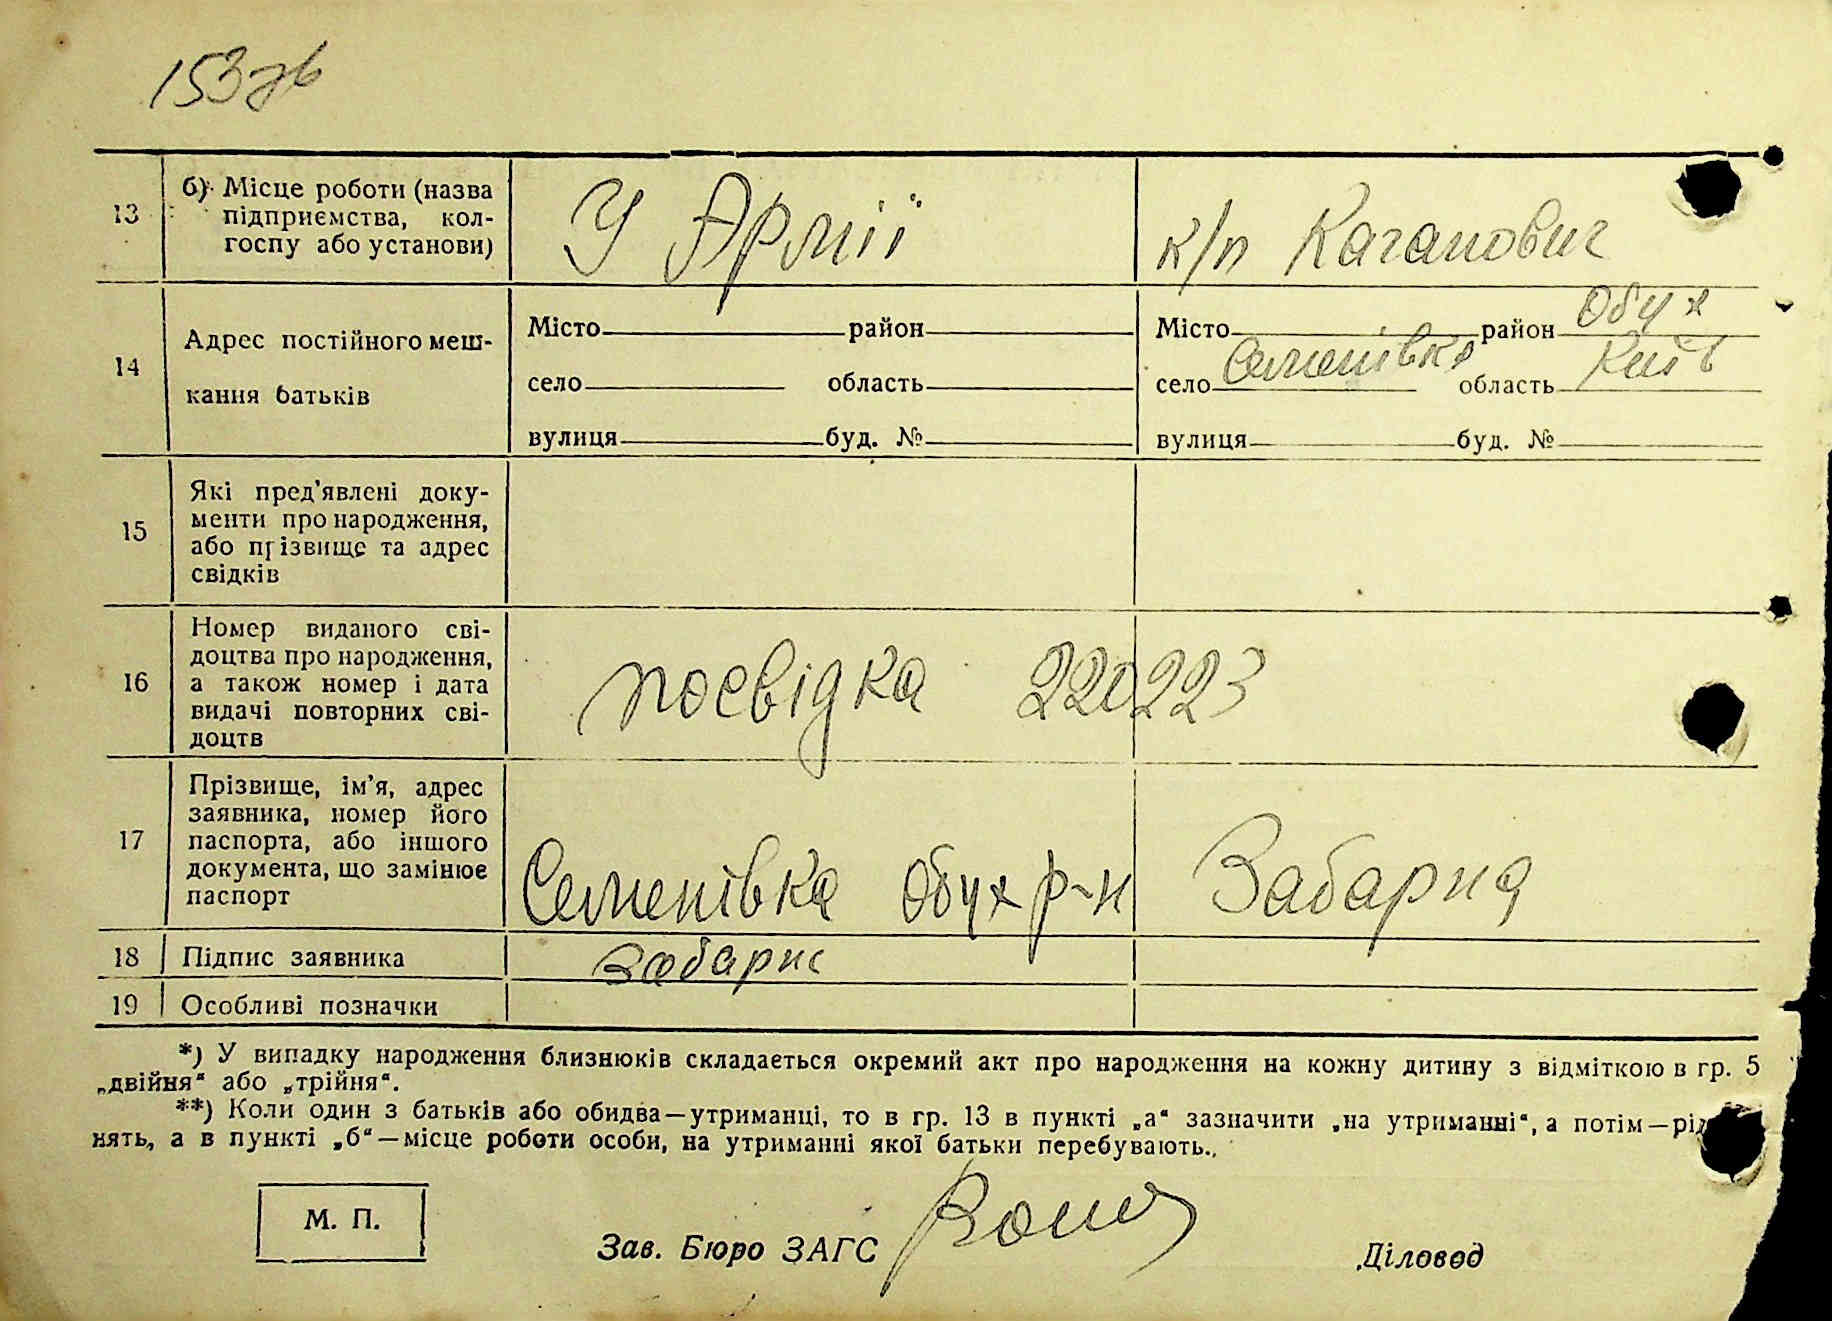 153 зв
13 б) Місце роботи (назва
підприємства, кол-
госпу або установи)
У Армії
к/п Каганович
14 Адрес постійного меш-
кання батьків
Місто район
село область
вулиця буд. №
Місто район Обух
село Семенівка область Київ
вулиця буд. №
15 Які пред'явлені доку-
менти про народження,
або прізвище та адрес
свідків
16 Номер виданого сві-
доцтва про народження,
а також номер і дата
видачі повторних сві-
доцтв
посвідка 220223
17 Прізвище, ім'я, адрес
заявника, номер його
паспорта, або іншого
документа, що замінює
паспорт
Семенівка Обух р-н Забарна
18 Підпис заявника
Забарна
19 Особливі позначки
*) У випадку народження близнюків складається окремий акт про народження на кожну дитину з відміткою в гр. 5
„двійня“ або „трійня“.
**) Коли один з батьків або обидва—утриманці, то в гр. 13 в пункті „а“ зазначити „на утриманні“, а потім—рід
нять, а в пункті „б“—місце роботи особи, на утриманні якої батьки перебувають.
М. П.
Зав. Бюро ЗАГС
Діловод